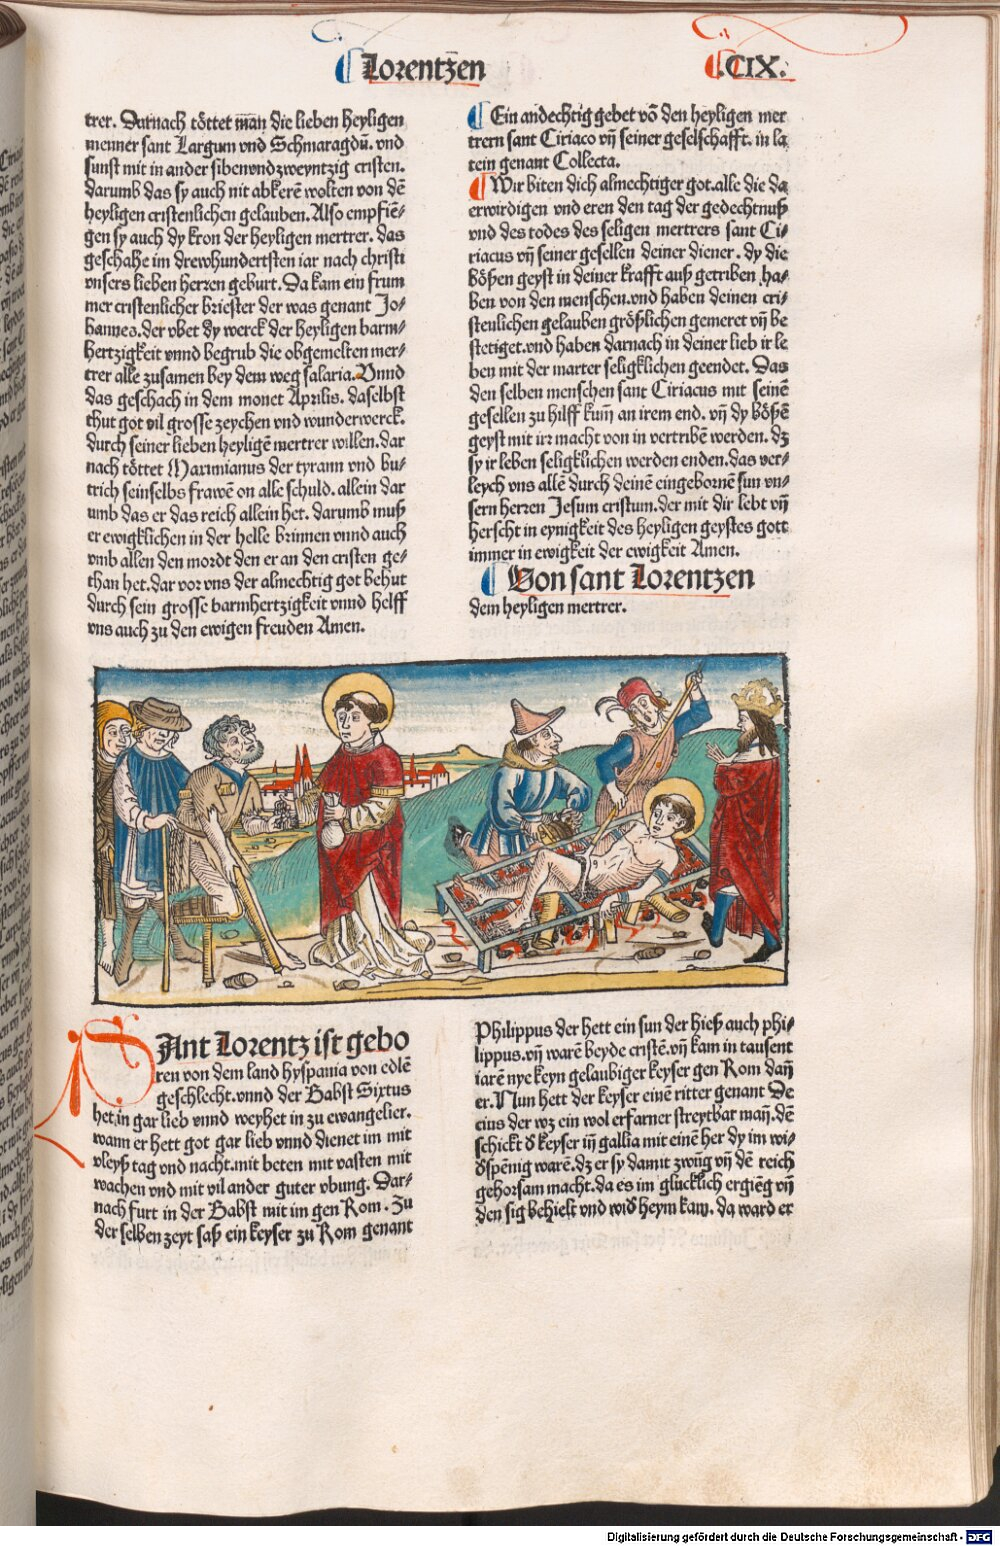 Lorentzen
.CIX.
trer. Darnach töttet man die lieben heyligen
menner sant Largum vnd Schmaragdū. vnd
sunst mit in ander sibenvndzweyntzig cristen.
darumb das sy auch nit abkerē wolten von dē
heyligen cristenlichen gelauben. Also empfiē-
gen sy auch dy kron der heyligen mertrer. das
geschahe im drewhundertsten iar nach christi
vnsers lieben herren geburt. Da kam ein frum
mer cristenlicher briester der was genant Jo-
hannes. der vbet dy werck der heyligen barm-
hertzigkeit vnnd begrub die obgemelten mer-
trer alle zusamen bey dem weg salaria. Vnnd
das geschach in dem monet Aprilis. daselbst
thut got vil grosse zeychen vnd wunderwerck.
durch seiner lieben heyligē mertrer willen. dar
nach töttet Maximianus der tyrann vnd bu-
trich seinselbs frawē on alle schuld. allein dar
umb das er das reich allein het. darumb muß
er ewigklichen in der helle brinnen vnnd auch
vmb allen den mordt den er an den cristen ge-
than het. dar vor vns der almechtig got behut
durch sein grosse barmhertzigkeit vnnd helff
vns auch zu den ewigen freuden Amen.
Ein andechtig gebet vō den heyligen mer
trern sant Ciriaco vn̄ seiner geselschafft. in la
tein genant Collecta.
Wir biten dich almechtiger got. alle die da
erwirdigen vnd eren den tag der gedechtnuß
vnd des todes des seligen mertrers sant Ci-
riacus vn̄ seiner gesellen deiner diener. dy die
bößen geyst in deiner krafft auß getriben ha-
ben von den menschen. vnd haben deinen cri-
stenlichen gelauben größlichen gemeret vn̄ be
stetiget. vnd haben darnach in deiner lieb ir le
ben mit der marter seligklichen geendet. Das
den selben menschen sant Ciriacus mit seinē
gesellen zu hilff kum̄ an irem end. vn̄ dy bößē
geyst mit irr macht von in vertribē werden. dz
sy ir leben seligklichen werden enden. das ver-
leych vns allē durch deinē eingebornē sun vn-
sern herren Jesum cristum. der mit dir lebt vn̄
herscht in eynigkeit des heyligen geystes gott
immer in ewigkeit der ewigkeit Amen.
Von sant Lorentzen
dem heyligen mertrer.
SAnt Lorentz ist gebo
ren von dem land hyspania von edlē
geschlecht. vnnd der Babst Sixtus
het. in gar lieb vnnd weyhet in zu ewangelier.
wann er hett got gar lieb vnnd dienet im mit
vleyß tag vnd nacht. mit beten mit vasten mit
wachen vnd mit vil ander guter vbung. Dar-
nach furt in der Babst mit im gen Rom. Zu
der selben zeyt saß ein keyser zu Rom genant
Philippus der hett ein sun der hieß auch phi-
lippus. vn̄ warē beyde cristē. vn̄ kam in tausent
iarē nye keyn gelaubiger keyser gen Rom dan̄
er. Nun hett der keyser einē ritter genant De
cius der wz ein wol erfarner streytbar man̄. dē
schickt d̕ keyser in̄ gallia mit einē her dy im wi-
d̕spēnig warē. dz er sy damit zwūg vn̄ dē reich
gehorsam macht. da es im glücklich ergieng vn̄
den sig behielt vnd wid̕ heym kam. da ward er
Digitalisierung gefördert durch die Deutsche Forschungsgemeinschaft - DFG